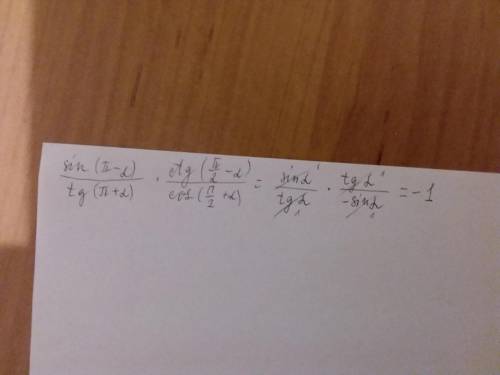 sin(π-α)/tg(π+α) · ctg(π/2-α)/cos(π/2+α) = sinα/tgα · tgα/-sinα = -1